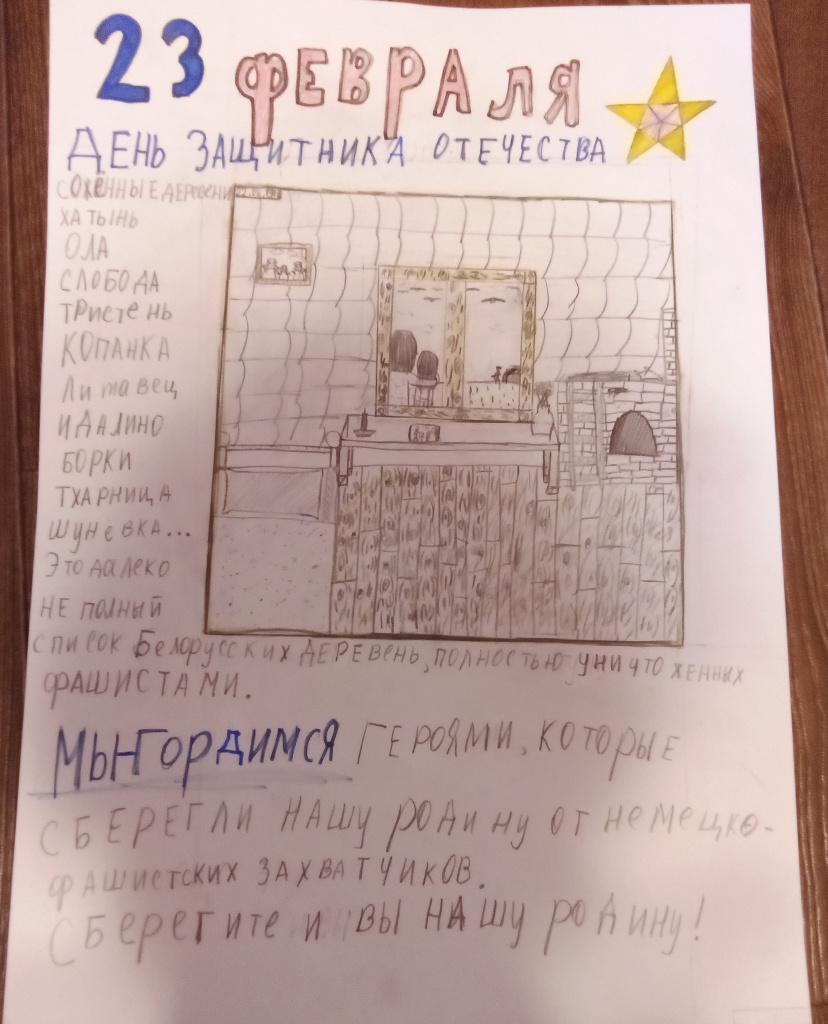 23 ФЕВРАЛЯ
ДЕНЬ ЗАЩИТНИКА ОТЕЧЕСТВА
СОЖЕННЫЕ ДЕРЕВЕНИ
ХАТЫНЬ
ОЛА
СЛОБОДА
ТРИСТЕНЬ
КОПАНКА
ЛИТАВЕЦ
ИДАЛИНО
БОРКИ
ТХАРНИЦА
ШУНЕВКА...
Это далеко
НЕ ПОЛНЫЙ
СПИСОК БЕЛОРУССКИХ ДЕРЕВЕНЬ, ПОЛНОСТЬЮ УНИЧТОЖЕННЫХ
ФАШИСТАМИ.
МЫ ГОРДИМСЯ ГЕРОЯМИ, КОТОРЫЕ
СБЕРЕГЛИ НАШУ РОДИНУ ОТ НЕМЕЦКО-
ФАШИСТСКИХ ЗАХВАТЧИКОВ.
СБЕРЕГИТЕ И ВЫ НАШУ РОДИНУ!